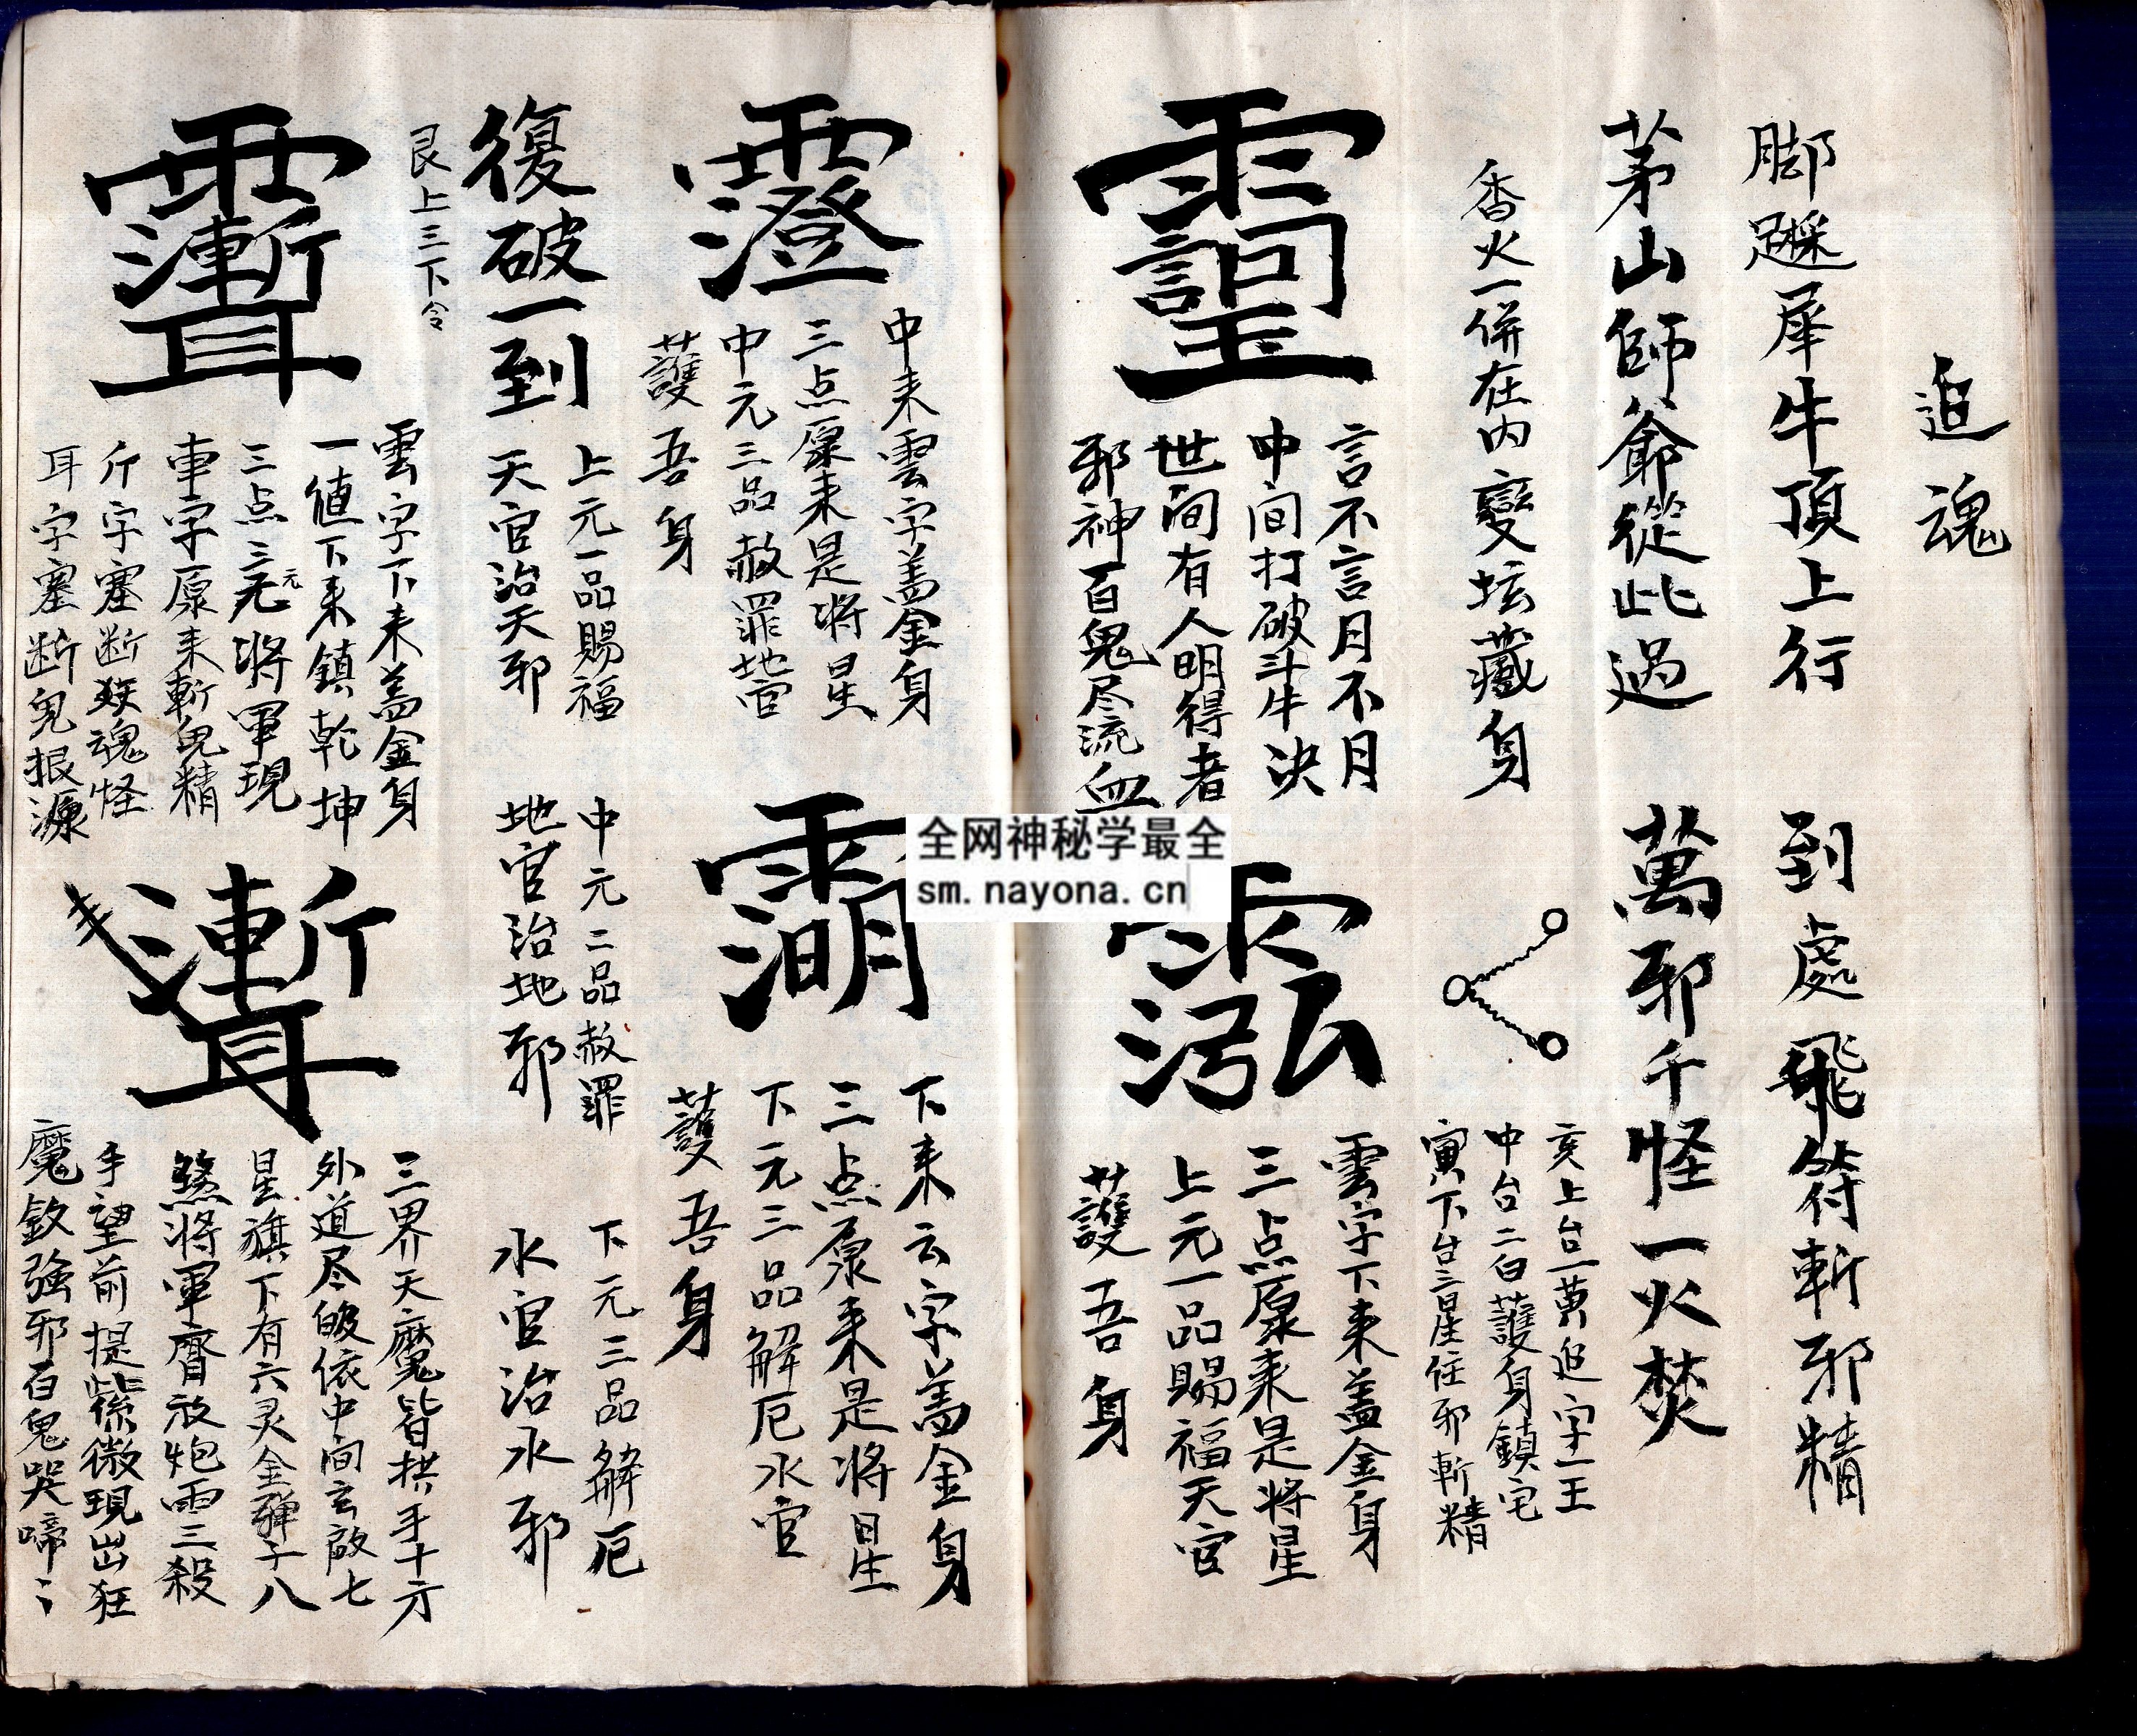 追魂
脚踩犀牛頂上行
到處飛符斬邪精
茅山師爺從此過
萬邪千怪一火焚
香火一併在内變坛藏身
亥上台一黄追字一王
中台二白護身鎮宅
寅下台三星任邪斬精
言不言月不月
中间打破斗牛决
世间有人明得者
邪神百鬼尽流血
雲字下来盖金身
三点原来是将星
上元一品賜福天官
護吾身
全网神秘学最全
sm.nayona.cn
中来雲字盖金身
三点原来是将星
中元二品赦罪地官
護吾身
下来云字盖金身
三点原来是将星
下元三品解厄水官
護吾身
復破一到
上元一品賜福
天官治天邪
中元二品赦罪
地官治地邪
下元三品解厄
水官治水邪
艮上三下令
雲字下来盖金身
一值下来鎮乾坤
三点三元将軍現
車字原来斬鬼精
斤字塞断妖魂怪
耳字塞断鬼根源
三界天魔皆拱手十方
外道尽皈依中间玄啟七
星旗下有六灵金彈子八
煞将軍齊放炮雨三殺
手望前提紫微現出狂
魔欽強邪百鬼哭啼: